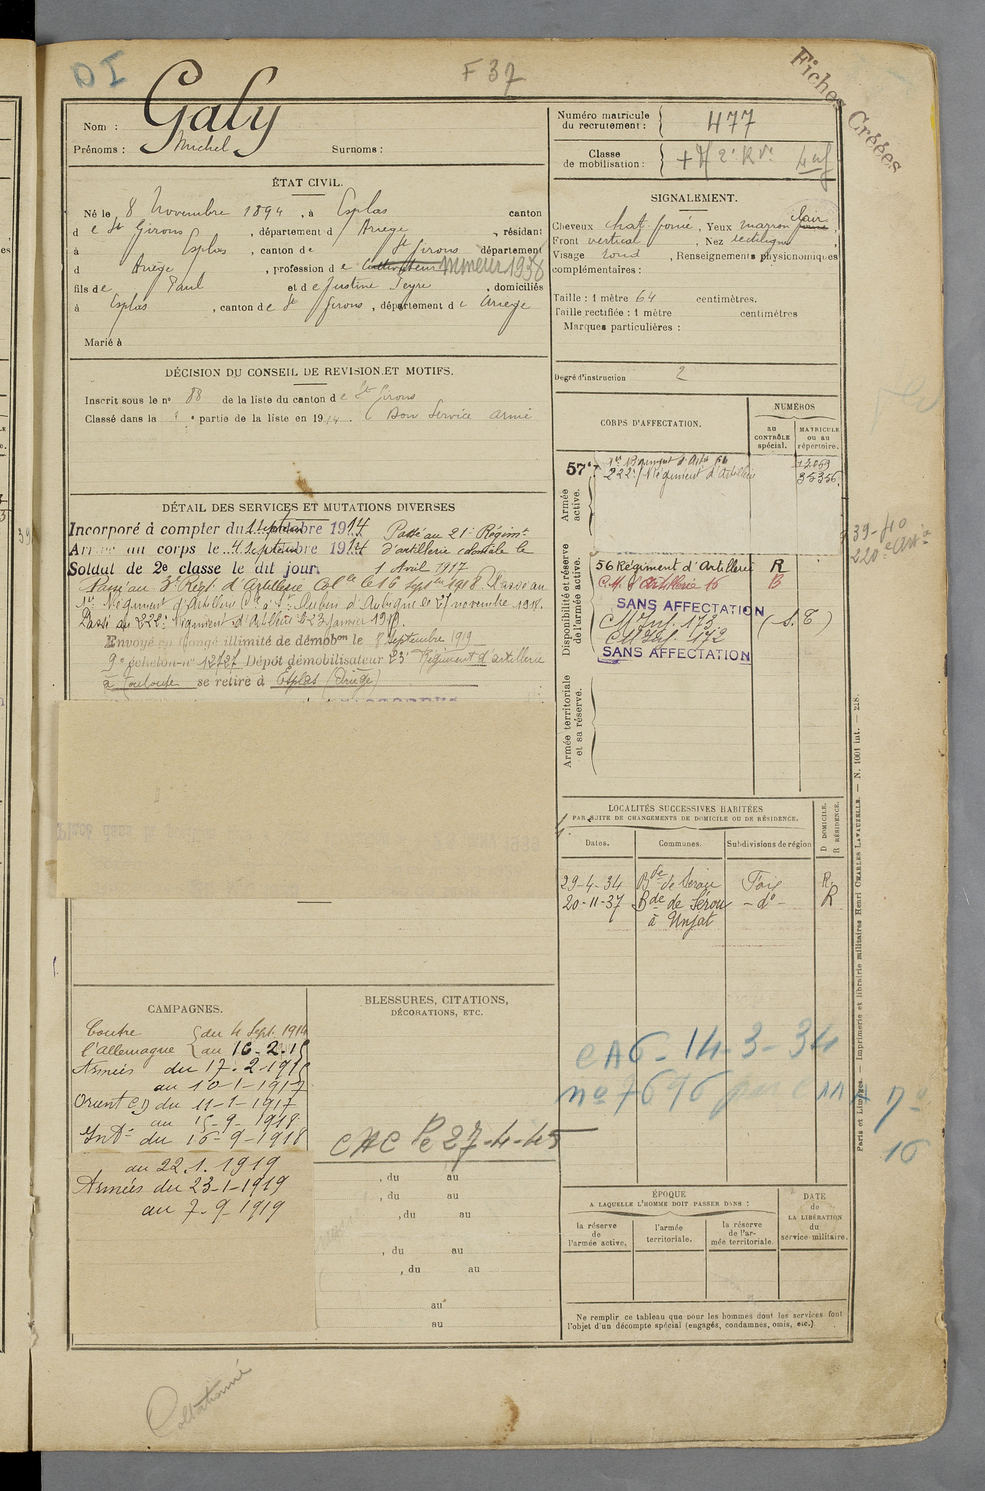 DI
F 37
Fiches Créées
Nom : Galy
Prénoms : Michel Surnoms :
Numéro matricule du recrutement : 477
Classe de mobilisation :
ÉTAT CIVIL.
Né le 8 Novembre 1894, à Esplas canton
de St Girons, département d Ariège, résidant
à Esplas, canton de St Girons département
d Ariège, profession de Cultivateur mineur 1938
fils de Paul et de Justine Peyre, domiciliés
à Esplas, canton de St Girons, département de Ariege
Marié à
SIGNALEMENT.
Cheveux chat. foncé, Yeux marron clair
Front vertical, Nez rectiligne,
Visage rond, Renseignements physionomiques
complémentaires :
Taille : 1 mètre 64 centimètres.
Taille rectifiée : 1 mètre centimètres
Marques particulières :
Degré d'instruction 2
DÉCISION DU CONSEIL DE REVISION ET MOTIFS.
Inscrit sous le no 88 de la liste du canton de St Girons
Classé dans la 1e partie de la liste en 1914. (Bon Service armé
DÉTAIL DES SERVICES ET MUTATIONS DIVERSES
Incorporé à compter du 1 septembre 1914
Arrivé au corps le 4 Septembre 1914
Soldat de 2e classe le dit jour.
Passé au 21e Régimt
d'artillerie coloniale le
1 Avril 1917
Passé au 3e Régt d'Artillerie Colle le 16 Septbre 1918. Passé au
1er Régiment d'Artillerie Cle à St Aubin d'Aubigné le 21 novembre 1918.
Passé au 222e Régiment d'Artillerie le 23 janvier 1919.
Envoyé en congé illimité de démobon le 8 septembre 1919
9e échelon no 12727 Dépôt démobilisateur 23e Régiment d'artillerie
à Toulouse se retire à Esplas (Ariège)
CORPS D'AFFECTATION.
NUMÉROS
au CONTRÔLE spécial.
MATRICULE ou au répertoire.
Armée active.
57e
1er Régiment d'Artie
222e Régiment d'Artillerie
13059
35356
Disponibilité et réserve de l'armée active.
56 Régiment d'Artillerie R
C.M. d'Artillerie 16 B
SANS AFFECTATION
C M Inf. 173 (S.E)
C M Inf. 172
SANS AFFECTATION
39-40
220e Artie
Armée territoriale et sa réserve.
LOCALITÉS SUCCESSIVES HABITÉES
PAR SUITE DE CHANGEMENTS DE DOMICILE OU DE RÉSIDENCE.
Dates. Communes. Subdivisions de région D DOMICILE. R RÉSIDENCE.
29-4-34 Bde de Sérou Foix R
20-11-37 Bde de Sérou - do - R
à Unjat
CAMPAGNES.
Contre l'Allemagne
du 4 Sept. 1914
au 16-2-15
Armées du 17-2-1915
au 10-1-1917
Orient CD du 11-1-1917
au 15-9-1918
Intr du 16-9-1918
au 22.1.1919
Armées du 23-1-1919
au 7-9-1919
BLESSURES, CITATIONS,
DÉCORATIONS, ETC.
CAC le 27-4-45
, du au
, du au
, du au
, du au
, du au
au
au
CA6-14-3-34
no 7696
16
ÉPOQUE
A LAQUELLE L'HOMME DOIT PASSER DANS :
la réserve de l'armée active.
l'armée territoriale.
la réserve de l'armée territoriale.
DATE de LA LIBÉRATION du service militaire.
Ne remplir ce tableau que pour les hommes dont les services font
l'objet d'un décompte spécial (engagés, condamnés, omis, etc.)
Paris et Limoges. — Imprimerie et librairie militaires Henri CHARLES LAVAUZELLE. — N. 1001 int. — 218.
Collationné